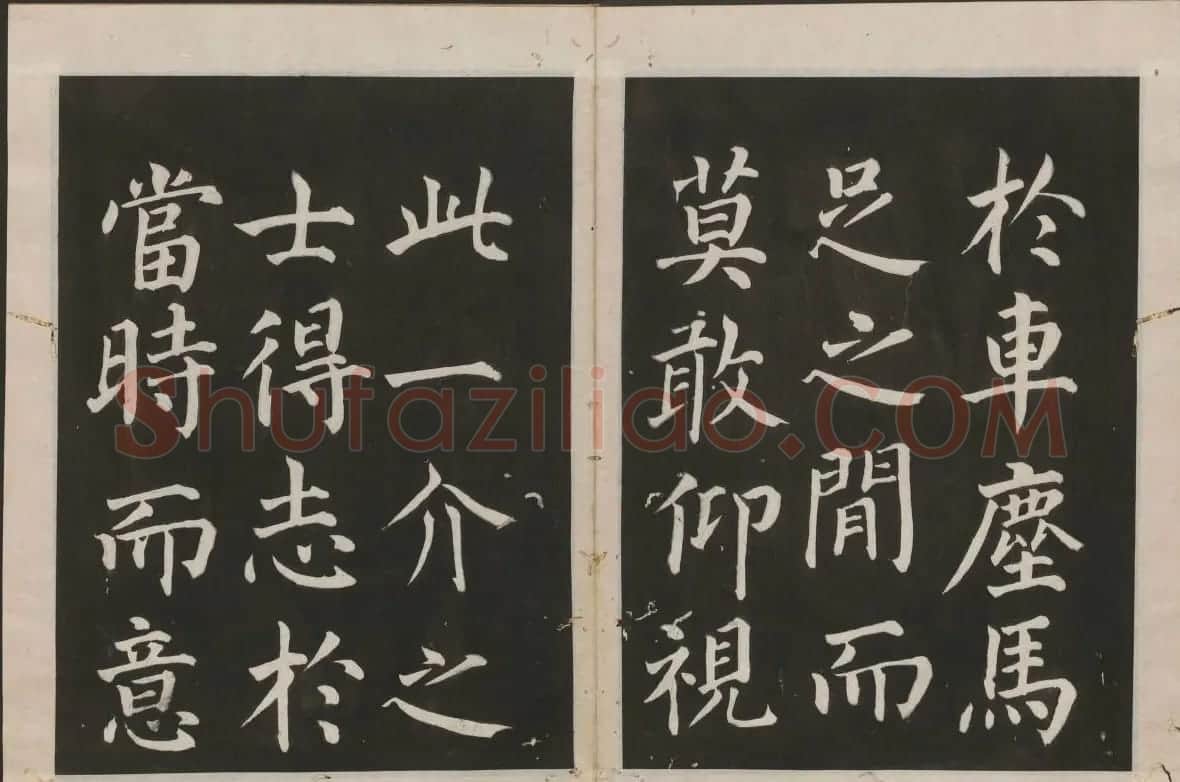 於車塵馬
足之閒而
莫敢仰視
此一介之
士得志於
當時而意
Shufazilidao.COM